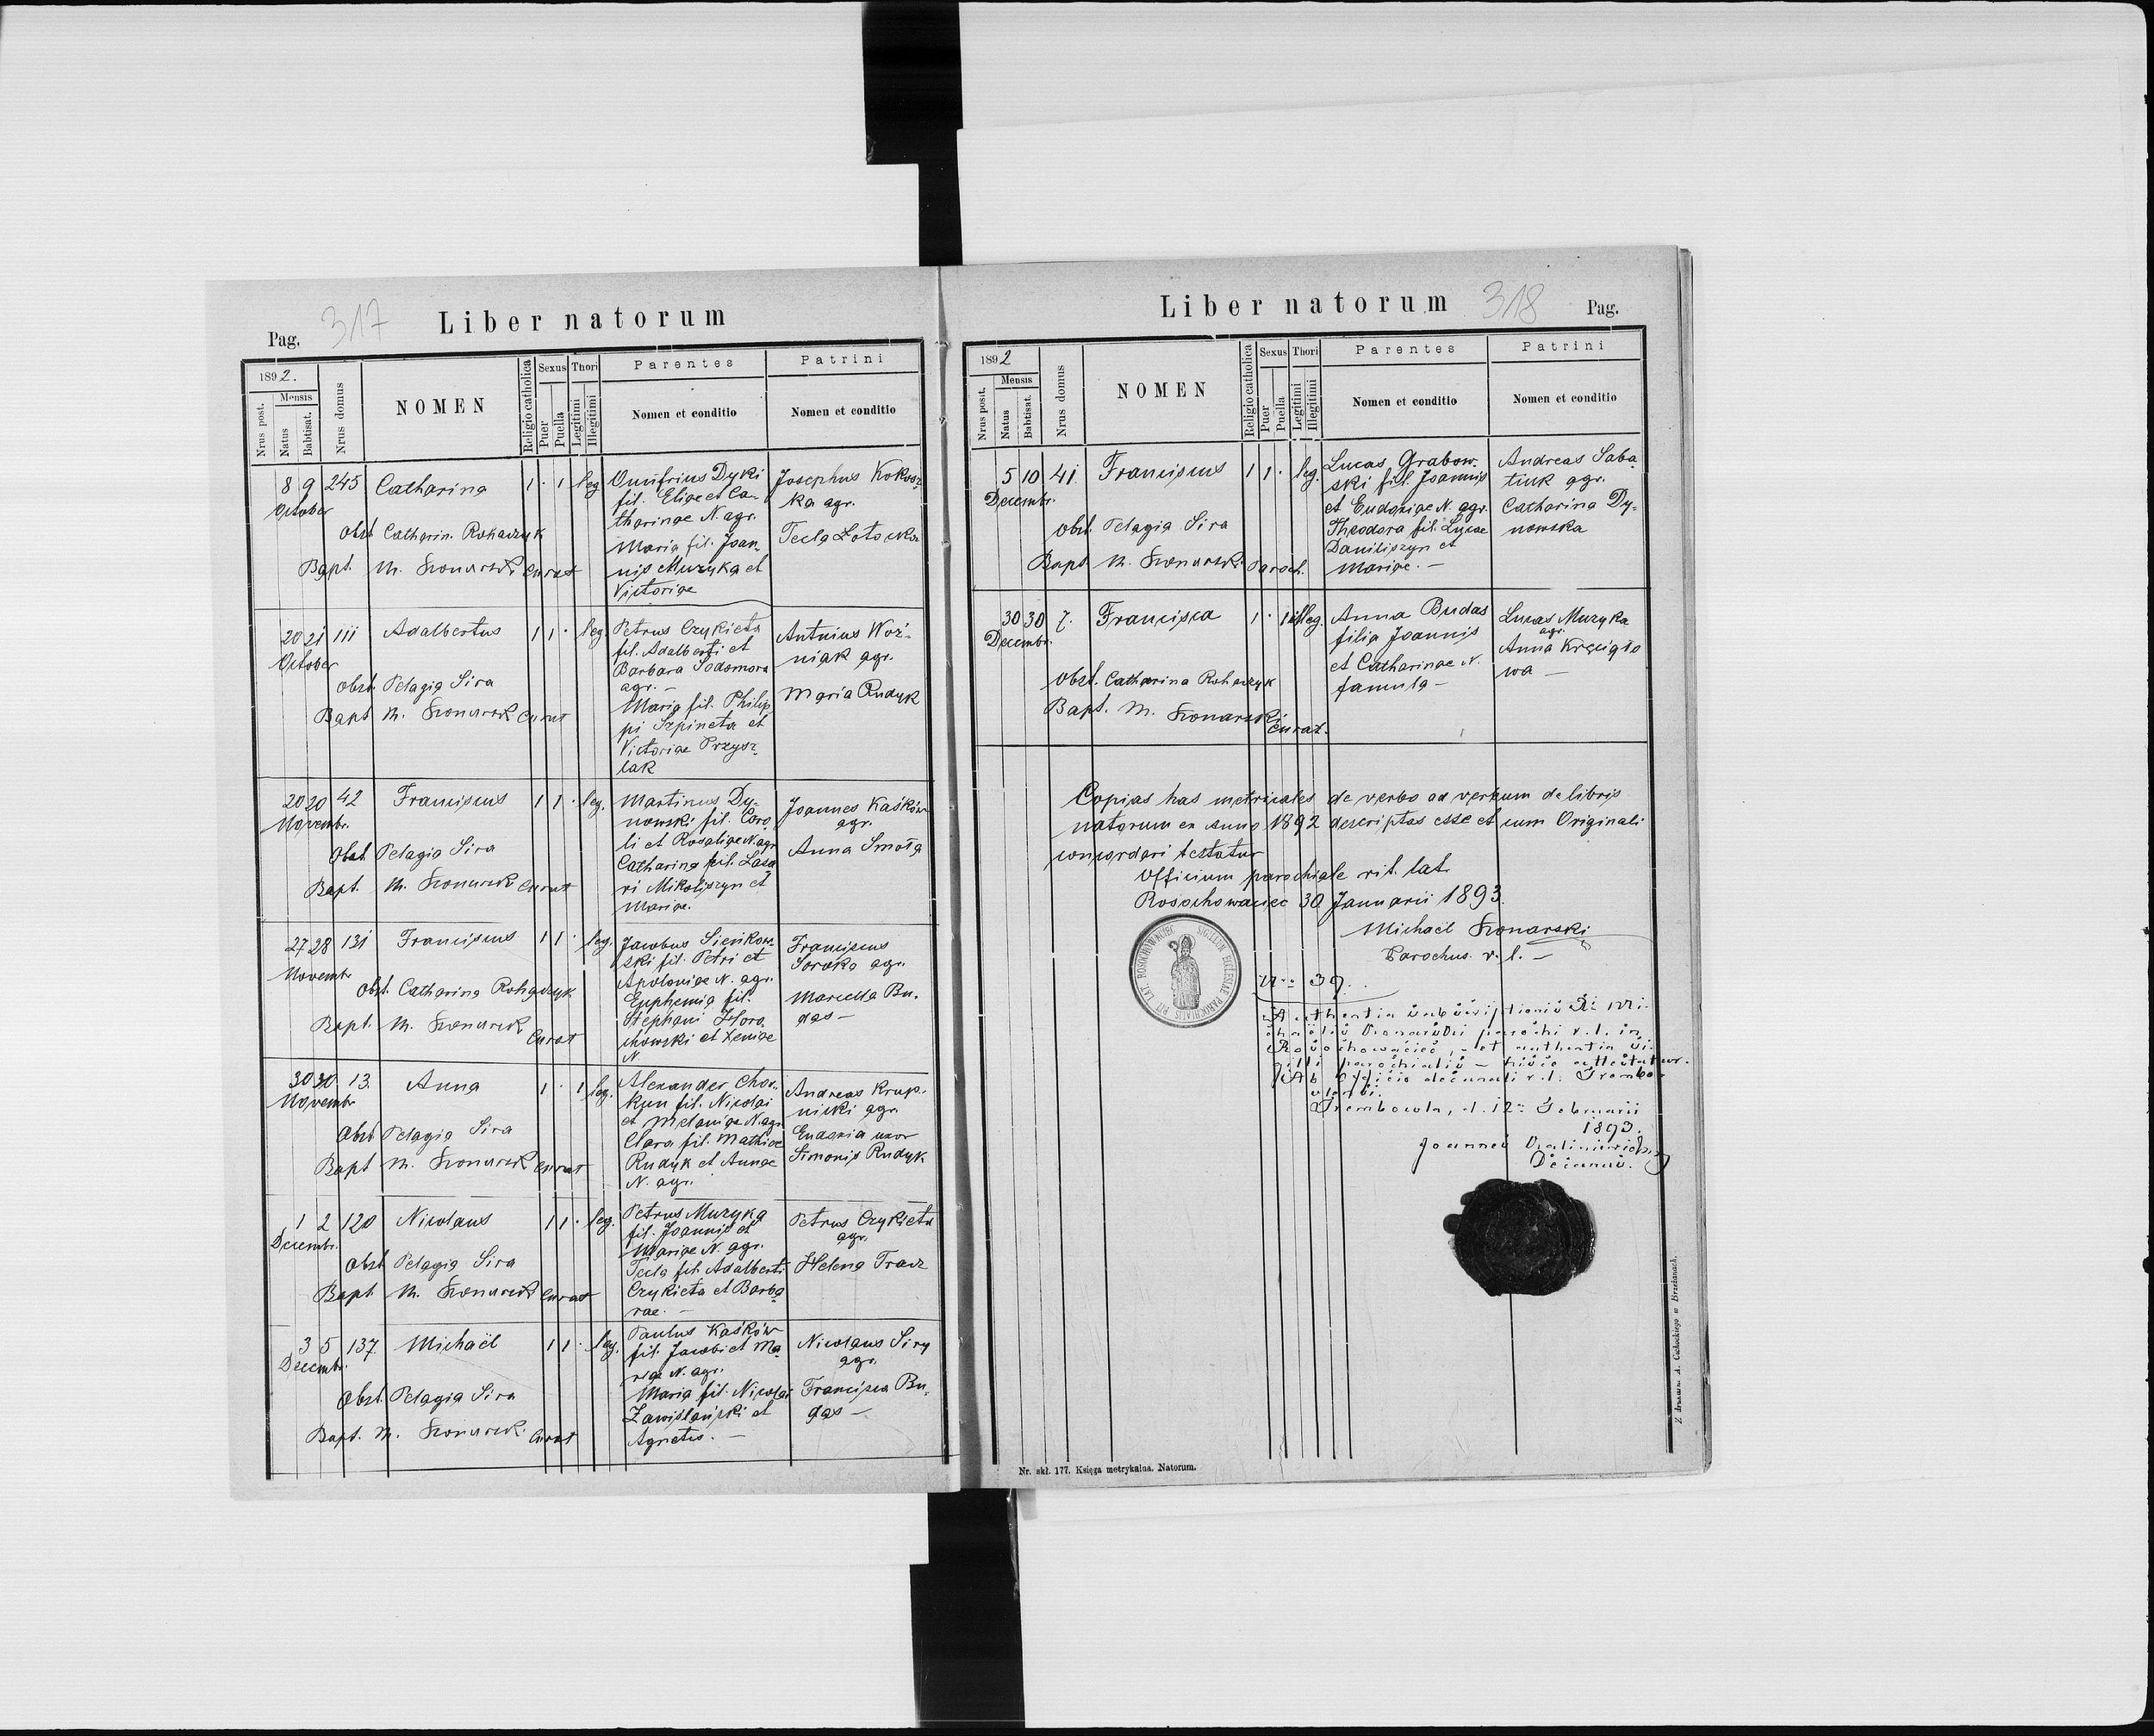 Pag. 317 Liber natorum
1892.
Nrus post.
Mensis
Natus
Babtisat.
Nrus domus
NOMEN
Religio catholica
Sexus
Puer
Puella
Thori
Legitimi
Illegitimi
Parentes
Nomen et conditio
Patrini
Nomen et conditio
8 9 245 Catharina 1 · 1 leg
October
Obst. Catharin. Rohaczyk
Bapt. M. Konarski Curat
Onufrius Dyki
fil. Eliae et Ca-
tharinae N. agr.
Maria fil. Joan-
nis Muzyka et
Victoriae
Josephus Kokosz-
ka agr.
Tecla Lotocka
20 21 111 Adalbertus 1 1 · leg.
October
Obst. Pelagia Sira
Bapt M. Konarski Curat
Petrus Czykieta
fil. Adalberti et
Barbara Sodomora
agr. —
Maria fil. Philip
pi Szpineta et
Victoriae Przysz-
lak
Antnius Woź-
niak agr.
Maria Rudyk
20 20 42 Franciscus 1 1 · leg.
Novembr.
Obst Pelagia Sira
Bapt. M. Konarski Curat
Martinus Dy-
nowski fil. Caro
li et Rosaliae N. agr
Catharina fil. Laza
ri Mikoliszyn et
Mariae.
Joannes Kaśków
agr.
Anna Smoła
27 28 131 Franciscus 1 1 · leg.
Novembr
Obst. Catharina Rohaczyk
Bapt. M. Konarski Curat
Jacobus Sieńkow-
ski fil. Petri et
Apoloniae N. agr.
Euphemia fil.
Stephani Horo
chowski et Xeniae
N.
Franciscus
Soroka agr.
Marcella Bu-
das —
30 30 13. Anna 1 · 1 leg.
Novembr
Obst Pelagia Sira
Bapt M. Konarski Curat
Alexander Chor-
kun fil. Nicolai
et Melaniae N. agr
Clara fil. Mathiae
Rudyk et Annae
N. agr.
Andreas Krup-
nicki agr.
Eudoxia uxor
Simonis Rudyk
1 2 120 Nicolaus 1 1 · leg.
Decembr.
Obst Pelagia Sira
Bapt M. Konarski Curat
Petrus Muzyka
fil. Joannis et
Mariae N. agr.
Tecla fil. Adalberti
Czykieta et Barba
rae. —
Petrus Czykieta
agr.
Helena Tracz
3 5 137 Michaël 1 1 · leg.
Decembr.
Obst. Pelagia Sira
Bapt. M. Konarski Curat
Paulus Kaśków
fil. Jacobi et Ma
riae N. agr.
Maria fil. Nicolai
Zawiślański et
Agnetis. —
Nicolaus Siry
agr.
Francisca Bu-
das —
Liber natorum 318 Pag.
1892
Nrus post.
Mensis
Natus
Babtisat.
Nrus domus
NOMEN
Religio catholica
Sexus
Puer
Puella
Thori
Legitimi
Illegitimi
Parentes
Nomen et conditio
Patrini
Nomen et conditio
5 10 41. Franciscus 1 1 · leg.
Decembr.
Obst. Pelagia Sira
Bapt M. Konarski Paroch.
Lucas Grabow-
ski fil. Joannis
et Eudoxiae N. agr.
Theodora fil. Lucae
Daniliszyn et
Mariae. —
Andreas Saba
tiuk agr.
Catharina Dy-
nowska
30 30 7. Francisca 1 · 1 illeg.
Decembr.
Obst. Catharina Rohaczyk
Bapt. M. Konarski
Curat.
Anna Budas
filia Joannis
et Catharinae N.
famula —
Lucas Muzyka
agr.
Anna Kręcigło
wa —
Copias has metricales de verbo ad verbum de libris
natorum ex anno 1892 descriptas esse et cum Originali
concordari testatur
Officium parochiale rit. lat.
Rosochowaciec 30 Januarii 1893.
Michaël Konarski
Parochus r. l. —
SIGILLUM ECCLESIAE PAROCHIALIS RIT. LAT.
Nro 39.
Authentia subscriptionis Ri Mi-
chaëlis Konarski parochi r. l. in
Rosochowaciec, – et authentia si-
gilli parochialis – hisce attestatur.
Ab officio decanali r. l. Trembo-
vlensi.
Trembowla, d. 12a Februarii
1893.
Joannes
Decanus.
Nr. skł. 177. Księga metrykalna. Natorum.
Z drukarni A. Cichockiego w Brzeżanach.